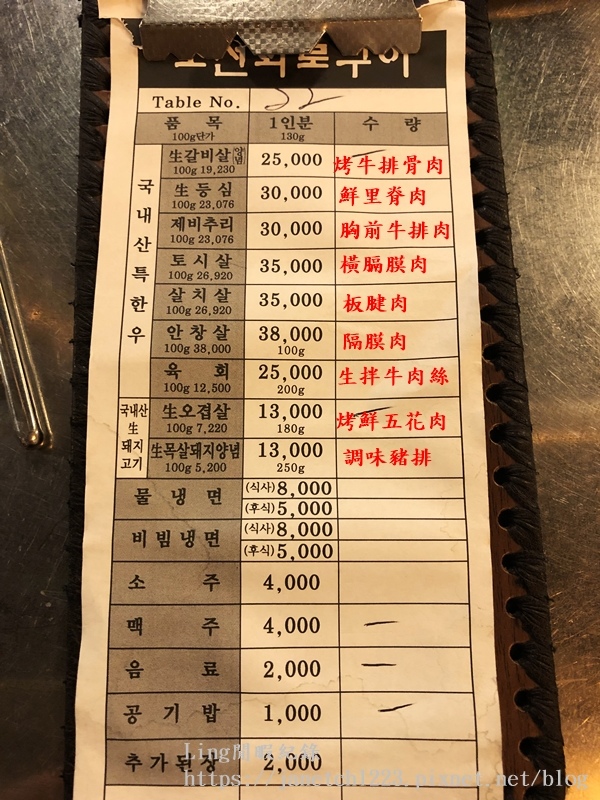 Table No. 22
품 목 1인분 수 량
100g단가 130g
국내산특한우
生갈비살 양념 25,000 烤牛排骨肉
100g 19,230
生등심 30,000 鮮里脊肉
100g 23,076
제비추리 30,000 胸前牛排肉
100g 23,076
토시살 35,000 橫膈膜肉
100g 26,920
살치살 35,000 板腱肉
100g 26,920
안창살 38,000 隔膜肉
100g 38,000 100g
육 회 25,000 生拌牛肉絲
100g 12,500 200g
국내산
生
돼지
고기
生오겹살 13,000 烤鮮五花肉
100g 7,220 180g
生목살돼지양념 13,000 調味豬排
100g 5,200 250g
물 냉 면 (식사)8,000
(후식)5,000
비 빔 냉 면 (식사)8,000
(후식)5,000
소 주 4,000
맥 주 4,000
음 료 2,000
공 기 밥 1,000
추가된장 2,000